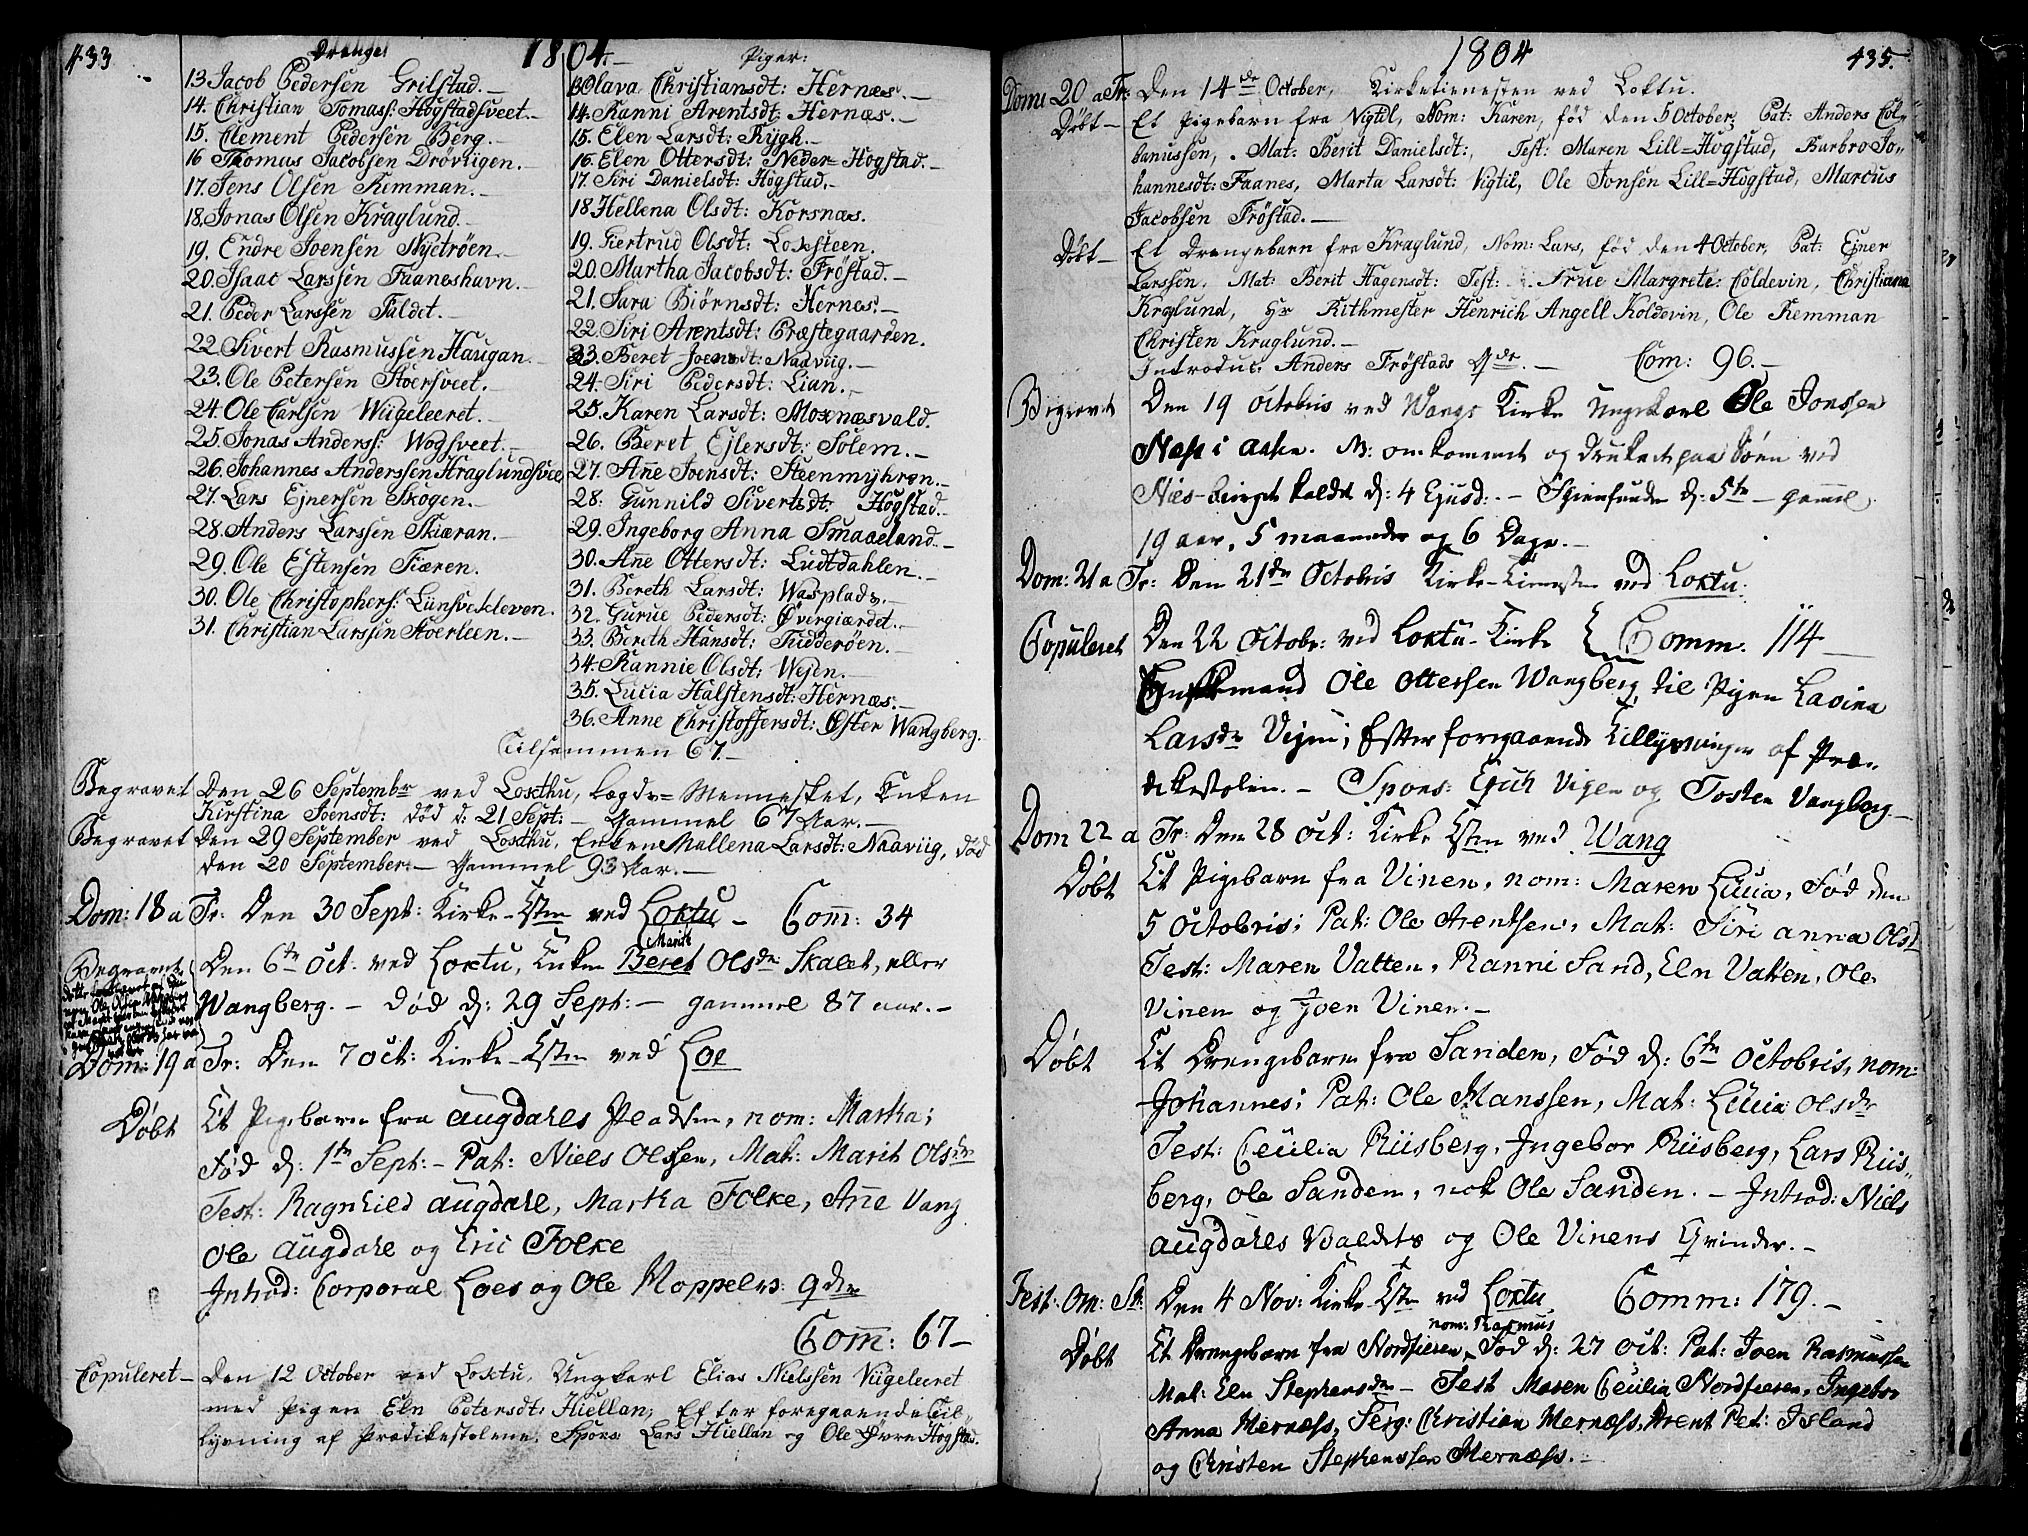 433
1804.
Drenge
13. Jacob Pedersen Grilstad.
14. Christian Tomass: Hogstadsveet.
15. Clement Pedersen Berg.
16 Thomas Jacobsen Drövligen.
17. Jens Olsen Remman.
18. Jonas Olsen Kraglund.
19. Endre Joensen Nyetröen.
20. Isaac Larssen Faaneshavn.
21. Peder Larssen Faldet.
22. Sivert Rasmussen Haugan.
23. Ole Petersen Stoersveet.
24. Ole Carlsen Wügeleeret.
25. Jonas Anderss: Wogsveet.
26. Johannes Anderssen Kraglundsvee
27. Lars Ejnersen Skogen.
28. Anders Larssen Skiæran.
29. Ole Estensen Fiæren.
30. Ole Christophers: Lunsvekleven.
31. Christian Larssen Stoerleen.
Piger:
13. Olava Christiansdt: Hernæs.
14. Ranni Arentsdt: Hernæs.
15. Elen Larsdt: Rygh.
16. Elen Ottersdt: Neder=Hogstad.
17. Siri Danielsdt: Hogstad.
18. Hellena Olsdt: Korsnæs.
19. Giertrud Olsdt: Loxsteen.
20. Martha Jacobsdt: Fröstad.
21. Sara Biörnsdt: Hernes.
22. Siri Arentsdt: Præstegaarden.
23. Beret Joensdt: Naavüg.
24. Siri Pedersdt: Lian.
25. Karen Larsdt: Moxnæsvald.
26. Beret Ejlersdt: Solem.
27. Añe Joensdt: Steenmyhren.
28. Gunnild Sivertsdt: Hogstad.
29. Ingeborg Anna Smaaeland.
30. Añe Ottersdt: Ludtdahlen.
31. Bereth Larsdt: Wasplads.
32. Gurue Pedersdt: Overgiærdet.
33. Bereth Hansdt: Fudderöen.
34. Rannie Olsdt: Wejen.
35. Lucia Halstensdt: Hernæs.
36. Anne Christoffersdt: Öster Wangberg.
Tilsammen 67.
Begravet Den 26 Septembr ved Loxthu, Lægds=Mennesket, Enken
Kirstina Joensdt: död d: 21 Sept: Gammel 67 Aar.
Begravet Den 29 September ved Loxthu, Enken Mallena Larsdt: Naavüg, död
den 20 September. Gammel 93 Aar.
Dom: 18 a Tr: Den 30 Sept: Kirke-Estn ved Loxtu Com̃: 34
Marit
Begravet Den 6te Oct. ved Loxtu, Enken Beret Olsdr Skalet, eller
Wangberg. Död d: 29 Sept: gammel 87 aar.
Dom: 19 a Tr: Den 7 Oct: Kirke-Estn ved Loe
Döbt Et Pigebarn fra Augdahls Pladsen, nom: Marta;
Föd d: 1te Sept: Pat: Niels Olssen, Mat: Marit Olsdr
Test: Ragnhild Augdahl, Martha Folke, Añe Vang
Ole Augdahl og Eric Folke
Introd: Corporal Loes og Ole Moppelrs: Qdr
Com̃: 67
Copuleret Den 12 October ved Loxtu, Ungkarl Elias Nielssen Vügeleeret
med Pigen Eln Petersdt: Hiellan, Efter foregaaende Til-
lysning af Prædikestolene. Spons Lars Hiellan og Ole Övre Hogstad.
1804
435.
Domi 20 a Tr: Den 14de October, Kirketienesten ved Loktu.
Döbt Et Pigebarn fra Vigtil, Nom: Karen, föd den 5 October, Pat: Anders Col-
banussen, Mat: Berit Danielsdt:, Test: Maren Lill=Hogstad, Barbro Jo-
hannesdt: Faanes, Marta Larsdt: Vigtil, Ole Jonsen Lill=Hogstad, Marcus
Jacobsen Fröstad.
Döbt Et Drengebarn fra Kraglund, Nom: Lars, föd den 4 October, Pat: Ejner
Larssen, Mat: Berit Hagensdt: Test: Frue Margrete: Coldevin, Christiana
Kraglund, Hr Rithmester Henrich Angell Koldevin, Ole Remman
Christen Kraglund.
Introduc: Anders Fröstads Qde. Com: 96.
Begravet Den 19 Octobris ved Wangs Kirke Ungekarl Ole Jonssen
Næss i Asken. NB: omkommet og druknet paa Söen ved
Næs-berget kaldet d: 4 Ejusd: Igienfunden d: 5te gammel
19 aar, 5 maaneder og 6 Dage.
Dom: 21 a Tr: Den 21de Octobris Kirke-Tienesten ved Loxtu.
Copuleret Den 22 Octobr: ved Loxtu-Kirke Comm. 114
Enkemand Ole Ottersen Wangberg til Pigen Lavina
Larsdr Vejen; Efter foregaaende Tillysninger af Præ-
dikestolen. Spons: Erich Vigen og Tosten Vangberg
Dom 22 a Tr: Den 28 Oct: Kirke Estn ved Wang
Döbt Et Pigebarn fra Vinen, nom: Maren Lucia, Föd den
5 Octobris; Pat: Ole Arentsen, Mat: Siri Anna Olsd
Test: Maren Vatten, Ranni Sand, Eln Vatten, Ole
Vinen og Joen Vinen.
Döbt Et Drengebarn fra Sanden, Föd d: 6te Octobris, nom:
Johannes; Pat: Ole Hanssen, Mat: Lucia Olsdr
Test: Cecilia Rüsberg, Ingebor Rüsberg, Lars Rüs-
berg, Ole Sanden, nok Ole Sanden. Introd: Niels
Augdahls Valdets og Ole Vinens Qvinder.
Fest: Om: St: Den 4 Nov: Kirke-Estn ved Loxtu Comm: 179.
nom: Rasmus
Döbt Et Drengebarn fra Nordfieren, Föd d: 27 Oct: Pat: Joen Rasmussen
Mat: Eln Stephensdr Test Maren Cecilia Nordfieren, Ingebor
Anna Hernæss, Serg: Christian Hernæss, Arent Pet: Island
og Christen Stephenssen Hernæss.